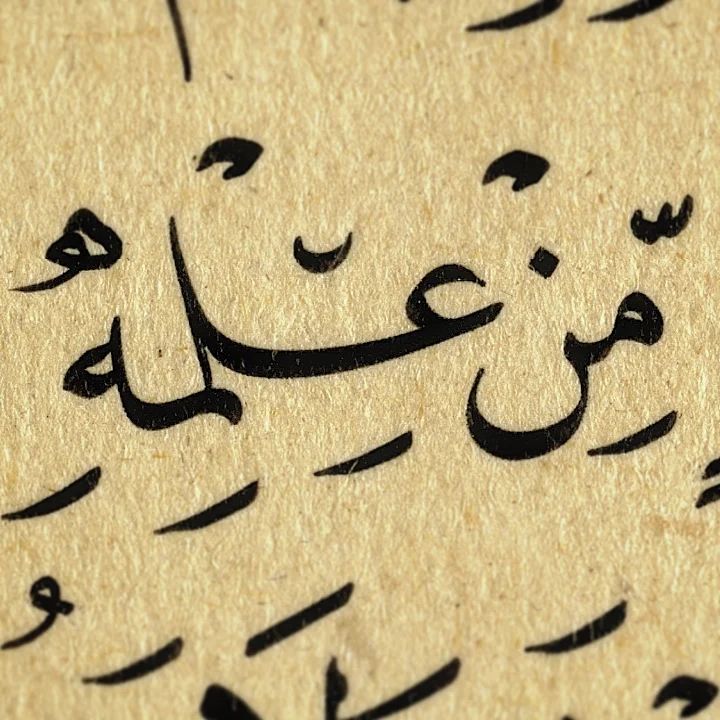 مِّنْ عِلْمِهِ